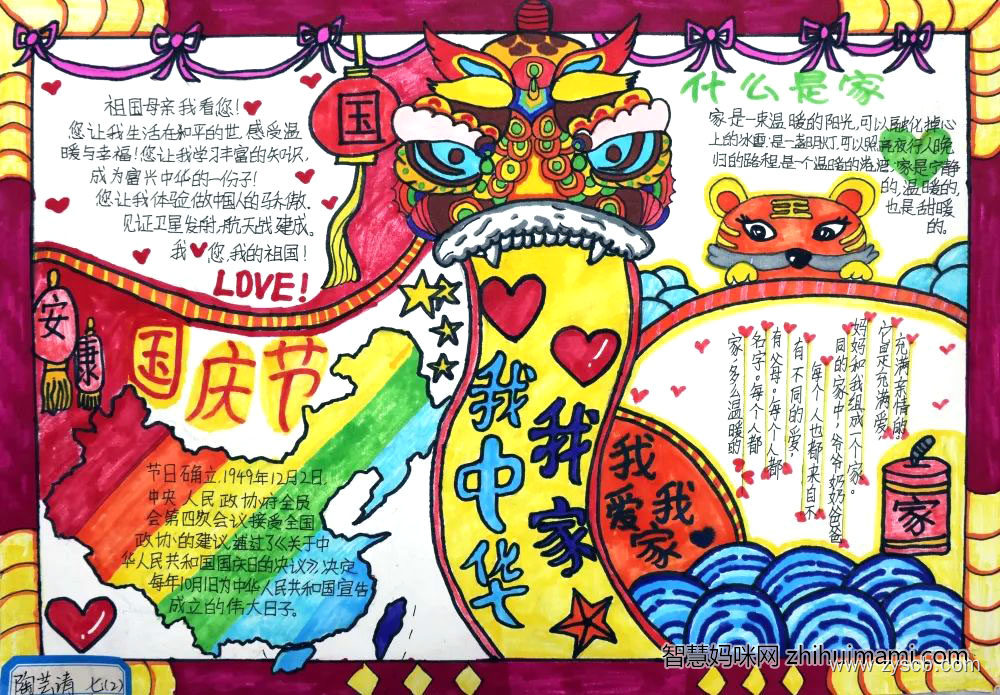 祖国母亲我看您！
您让我生活在和平的世,感受温
暖与幸福！您让我学习丰富的知识,
成为富兴中华的一份子！
您让我体验做中国人的骄傲.
见证卫星发射,航天战建成。
我❤您,我的祖国！
LOVE!
国
安
康
国庆节
节日确立,1949年12月2日,
中央人民政协府全员
会第四次会议接受全国
政协的建议通过了《关于中
华人民共和国国庆日的决议》,决定
每年10月1日为中华人民共和国宣告
成立的伟大日子。
我中华
我家
什么是家
家是一束温暖的阳光,可以融化掉心
上的冰雪;是一盏明灯,可以照亮夜行人晚
归的路程,是个温暖的港湾,家是宁静
的,温暖的,
也是甜暖
的。
王
充满亲情的
它是充满爱,
妈妈和我组成一个家。
同的家中,爷爷奶奶爸爸
每个人也都来自不
有不同的爱,
有父母。每个人都
名字。每个人都
家,多么温暖的
我爱我家
家
陶芸清 七(2)
智慧妈咪网 zhihuimami.com
www.zysc6.com